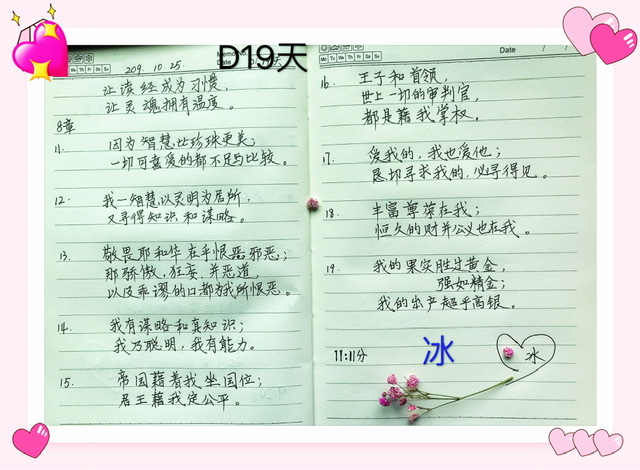 D19天
Date
209.10.25.
让读经成为习惯,
让灵魂拥有温度。
8章
11. 因为智慧比珍珠更美;
一切可喜爱的都不足与比较。
12. 我-智慧以灵明为居所,
又寻得知识和谋略。
13. 敬畏耶和华在乎恨恶邪恶;
那骄傲、狂妄、并恶道,
以及乖谬的口都为我所恨恶。
14. 我有谋略和真知识;
我乃聪明,我有能力。
15. 帝国藉着我坐国位;
君王藉我定公平。
Date / /
Mo Tu We Th Fr Sa Su
16. 王子和首领,
世上一切的审判官,
都是藉我掌权。
17. 爱我的,我也爱他;
恳切寻求我的,必寻得见。
18. 丰富尊荣在我;
恒久的财并公义也在我。
19. 我的果实胜过黄金,
强如精金;
我的出产超乎高银。
11:11分 冰 冰